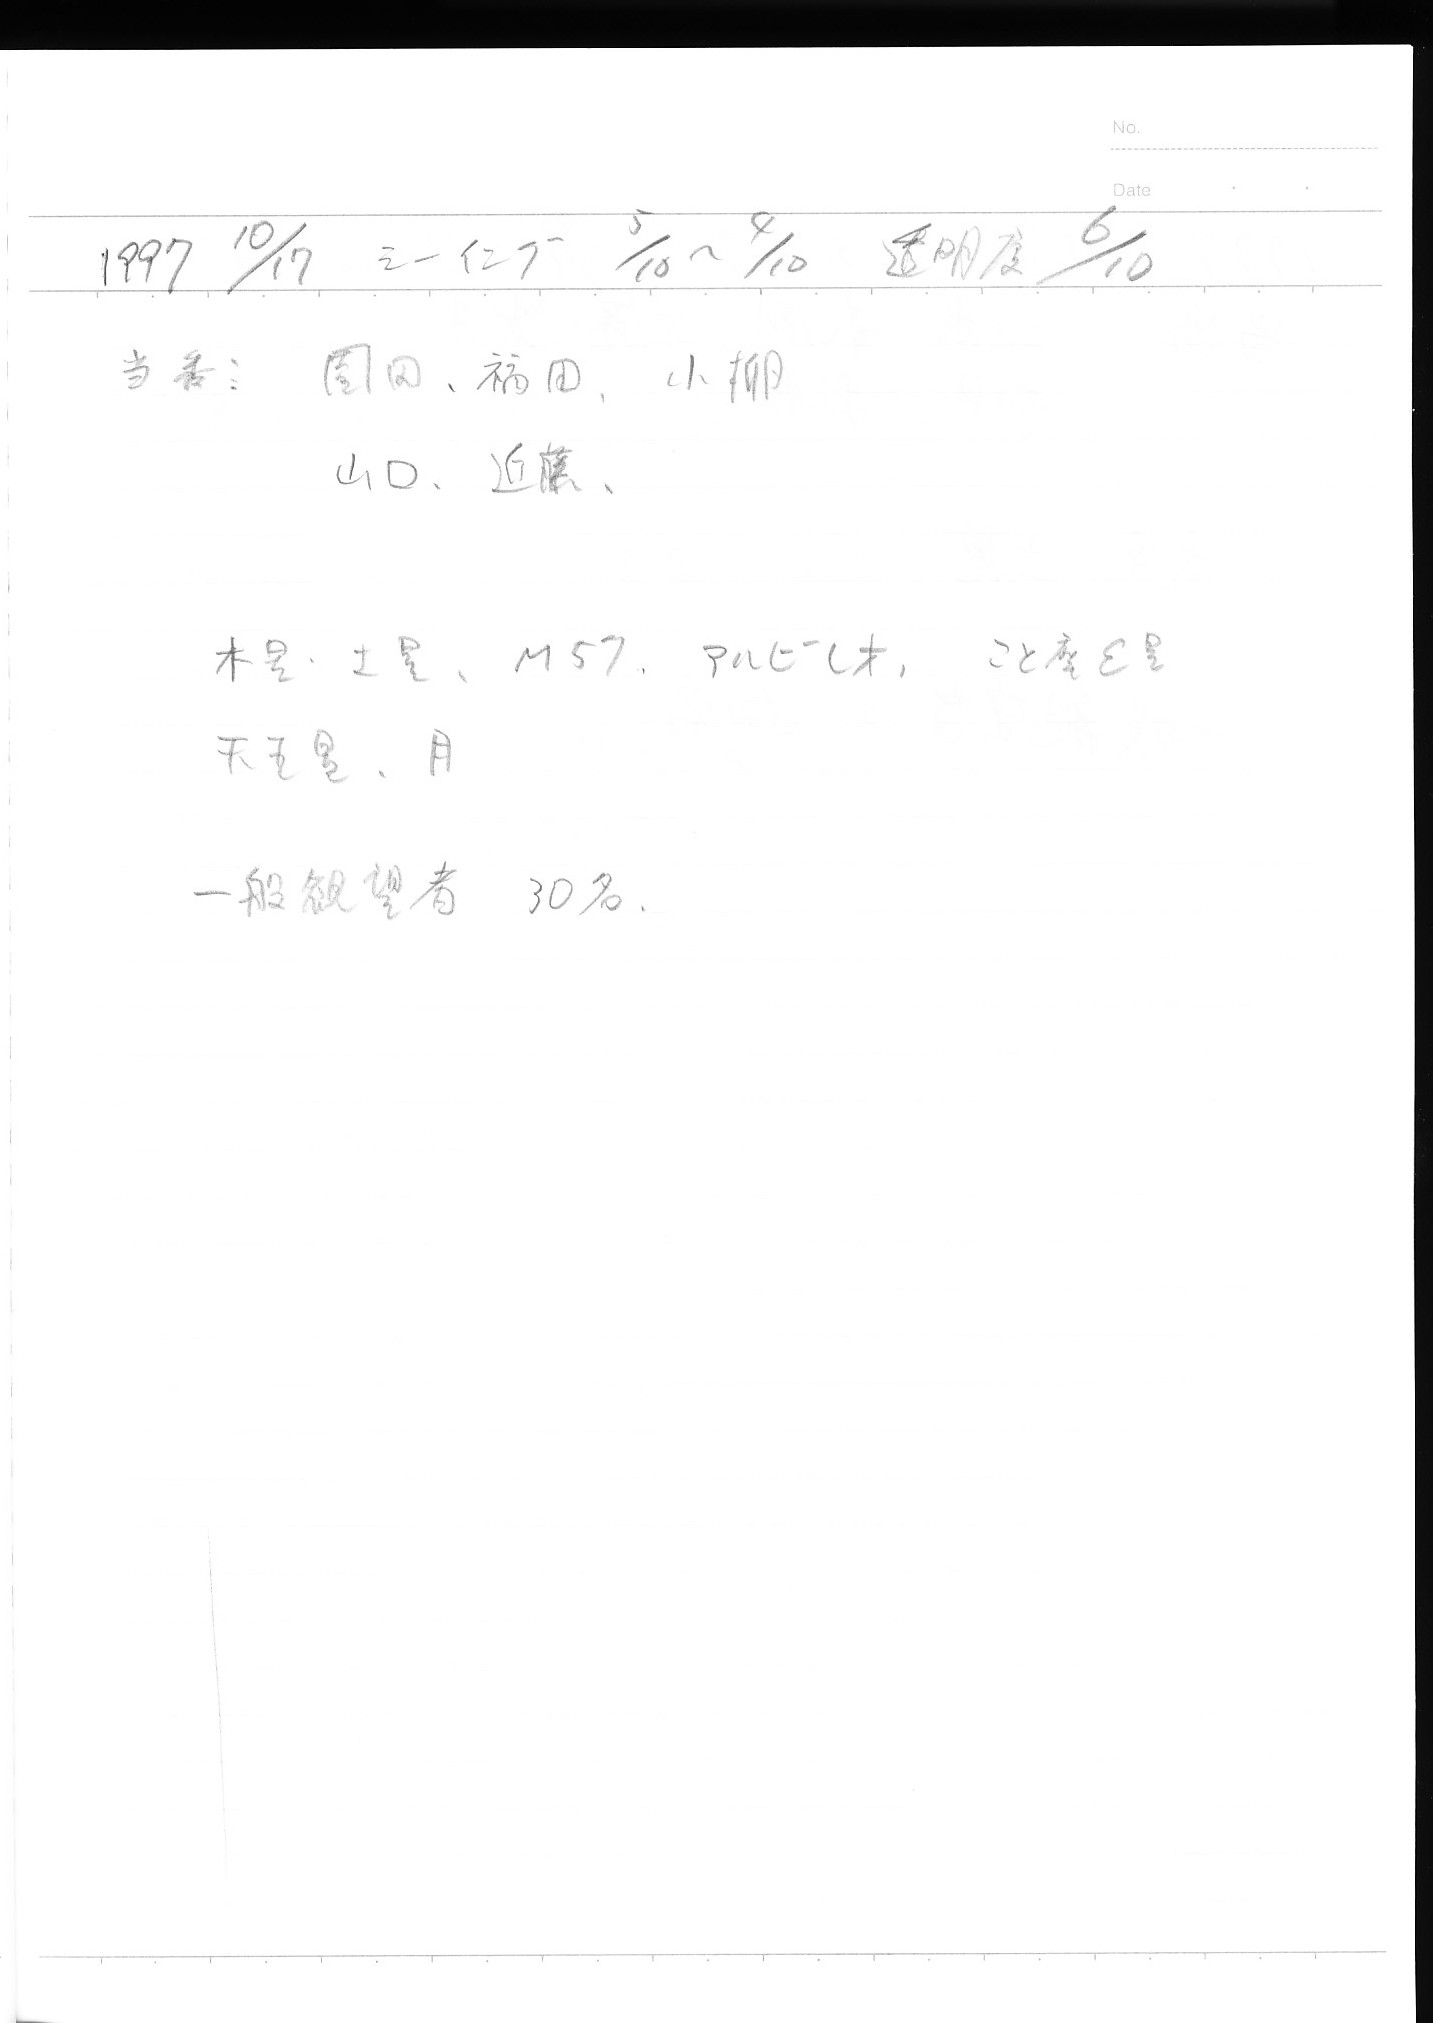 No.
Date
1997 10/17 シーイング 5/10〜4/10 透明度 6/10
当番: 園田、福田、小柳
山口、近藤、
木星・土星、M57、アルビレオ、こと座ε星
天王星、月
一般観望者 30名.